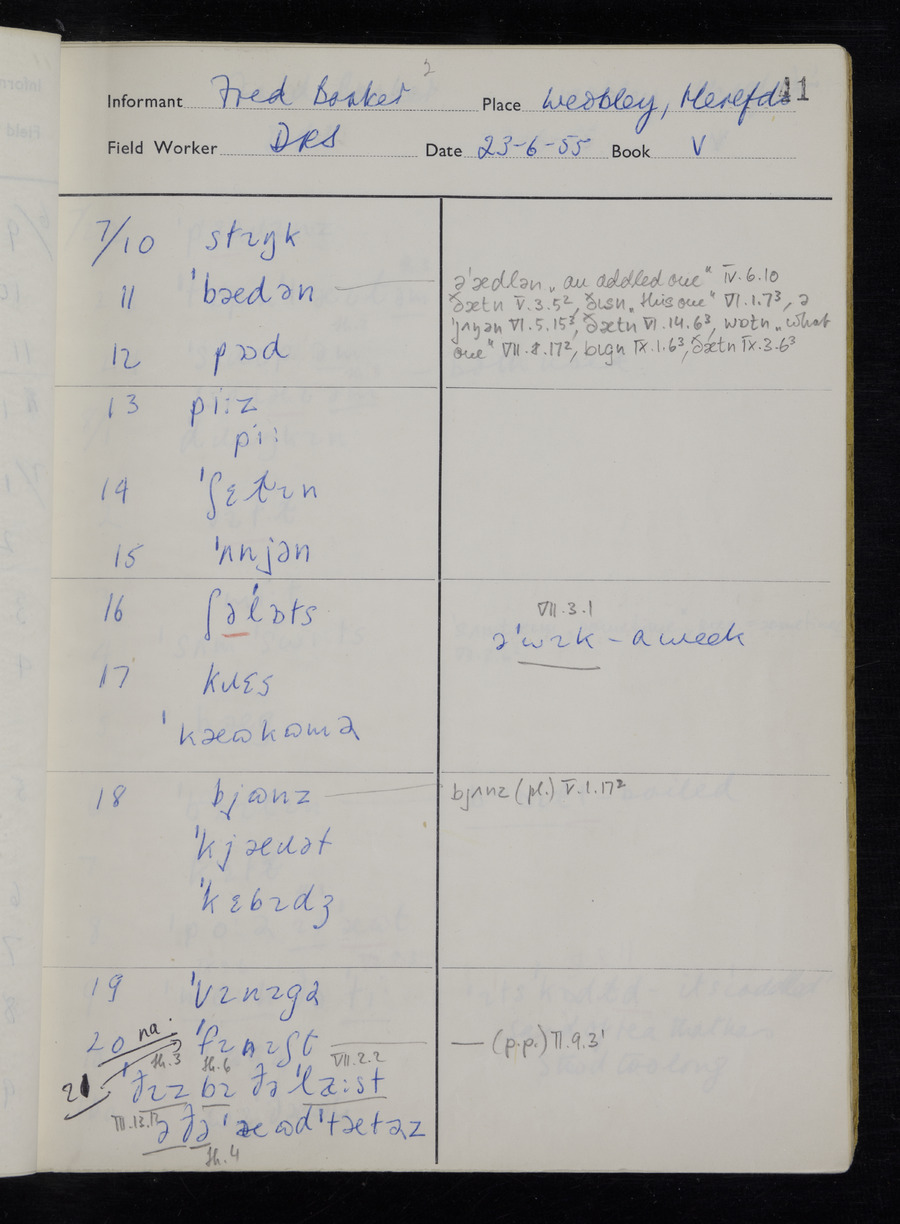 2
Informant Fred Barker Place Weobley, Herefds 11
Field Worker DRS Date 23-6-55 Book V
7/10 strɪŋk
11 ˈbædən
ə ˈædlən „an addled one“ IV.6.10
ðætn V.3.5², ðɪsn „this one“ VI.1.7³, ə
ˈjʌŋən VI.5.15³, ðætn VI.14.6³, wɒtn „what
one“ VII.8.17², bɪgn IX.1.6³, ðætn IX.3.6³
12 pɔd
13 pi:z
pi:
14 ˈʃɛtɪn
15 ˈʌnjən
16 ʃəˈlɔts
VII.3.1
əˈwɪk – a week
17 kɹɛs
ˈkæʊkʊmə
18 bjʊnz
bjʌnz (pl.) V.1.17²
ˈkjæɹət
ˈkɛbɪdʒ
19 ˈvɪnɪgə
20 na. ˈfɪnɪʃt
— (p.p.) VII.9.3¹
th.3 th.6 VII.2.2
21 ˈðɪz bɪ ðə ˈlæ:st
VIII.13.13 ə ðə ˈæʊd ˈtætəz
th.4